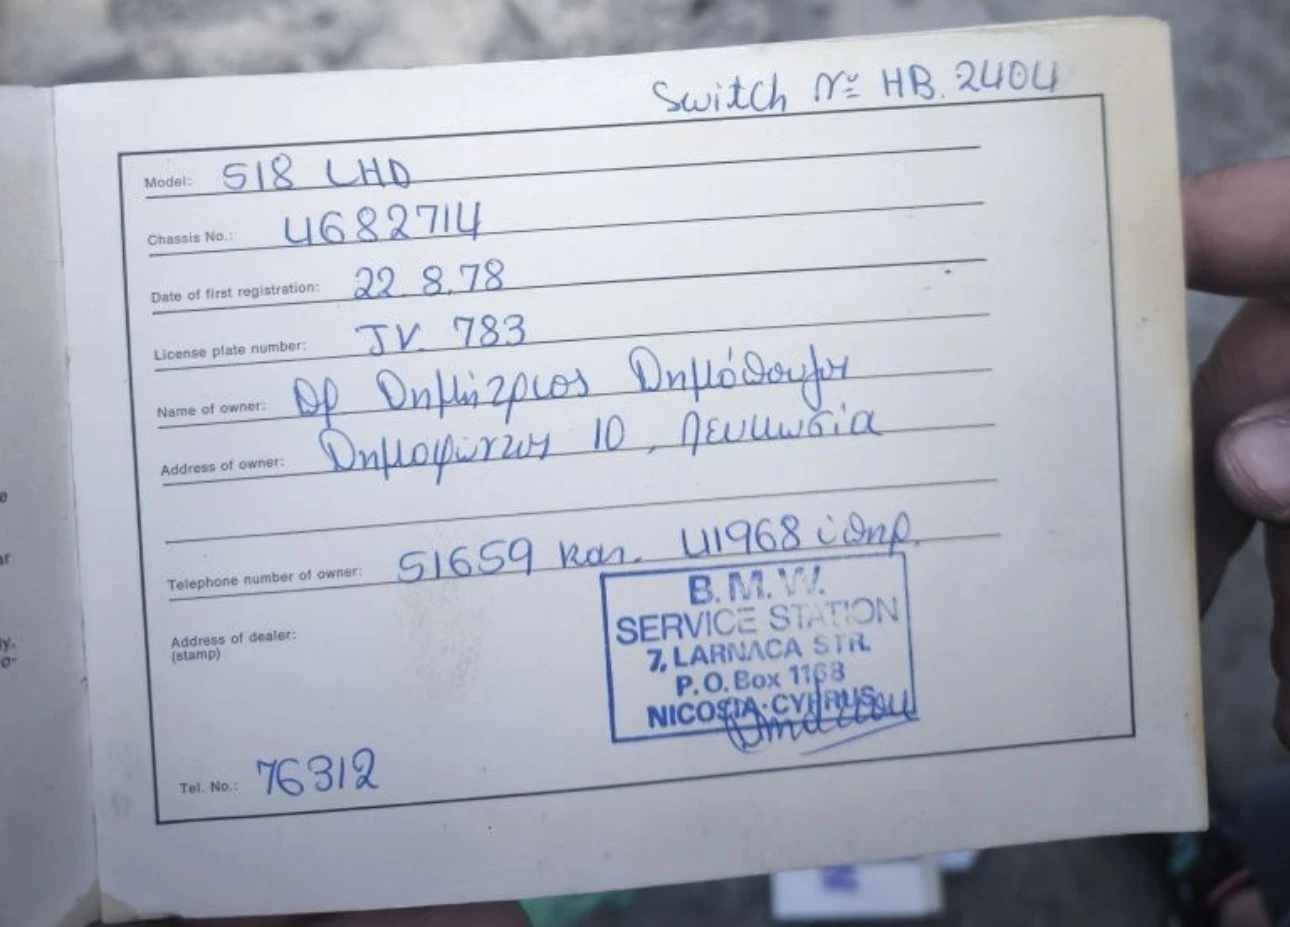 Switch No HB. 2404
Model: 518 LHD
Chassis No.: 4682714
Date of first registration: 22.8.78
License plate number: JV 783
Name of owner: Δρ Δημήτριος
Address of owner: Δημοφώντος 10, Λευκωσία
Telephone number of owner: 51659 κατ. 41968 ιατρ.
Address of dealer:
(stamp)
B.M.W.
SERVICE STATION
7, LARNACA STR.
P.O. Box 1168
NICOSIA-CYPRUS
Tel. No.: 76312